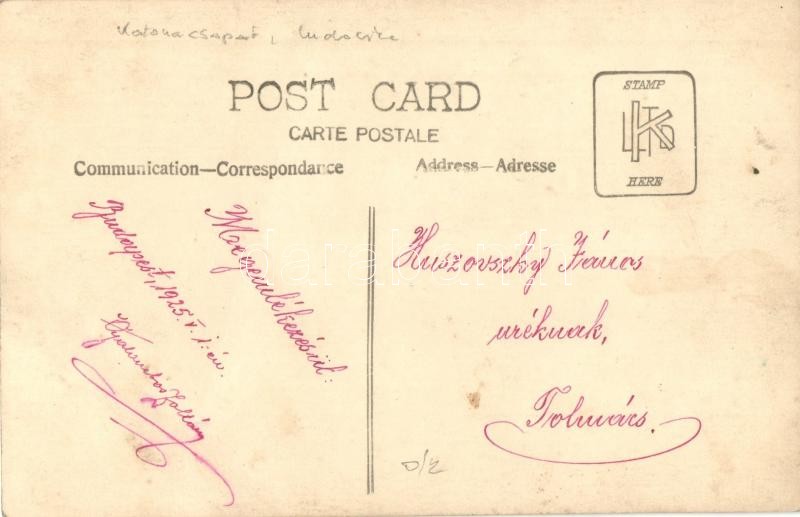 Katonacsapat, Ludovika
POST CARD
CARTE POSTALE
Communication—Correspondance
Address—Adresse
STAMP
HERE
Megemlékezésül:
Budapest, 1925. V. 1.-én.
Zoltán
Huszovszky János
uréknak,
Tolmács.
D/2
darabanth